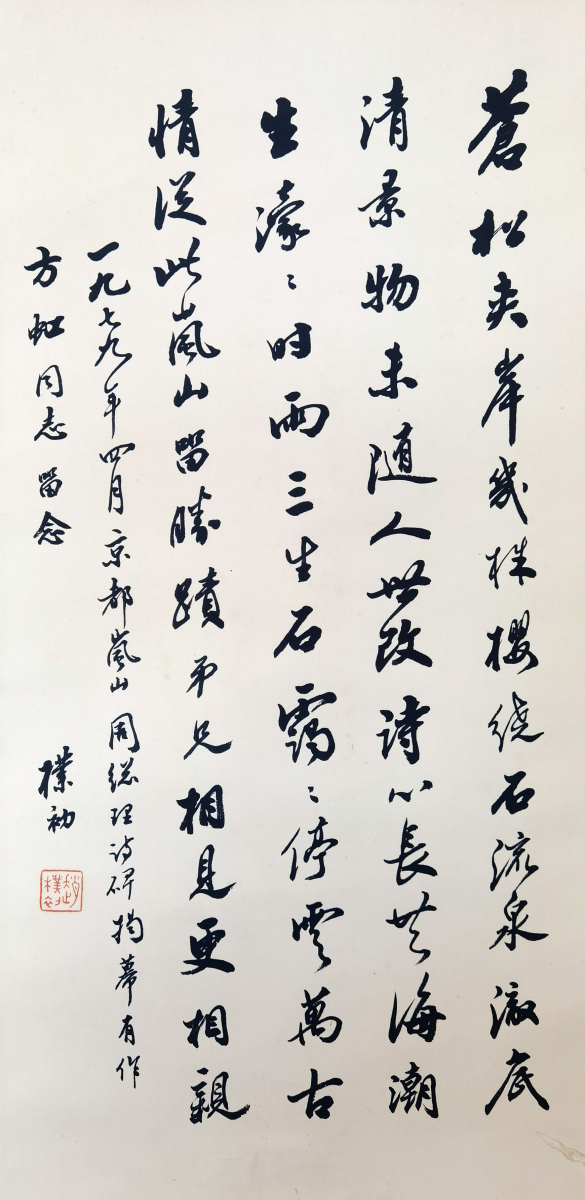 蒼松夾岸幾株櫻繞石流泉澈底
清景物未随人世改诗心長共海潮
生濛〻时雨三生石靄〻停雲萬古
情從此嵐山留勝蹟弟兄相見更相親
一九七九年四月京都嵐山周総理诗碑揭幕有作
方虹同志留念
樸初
趙樸初